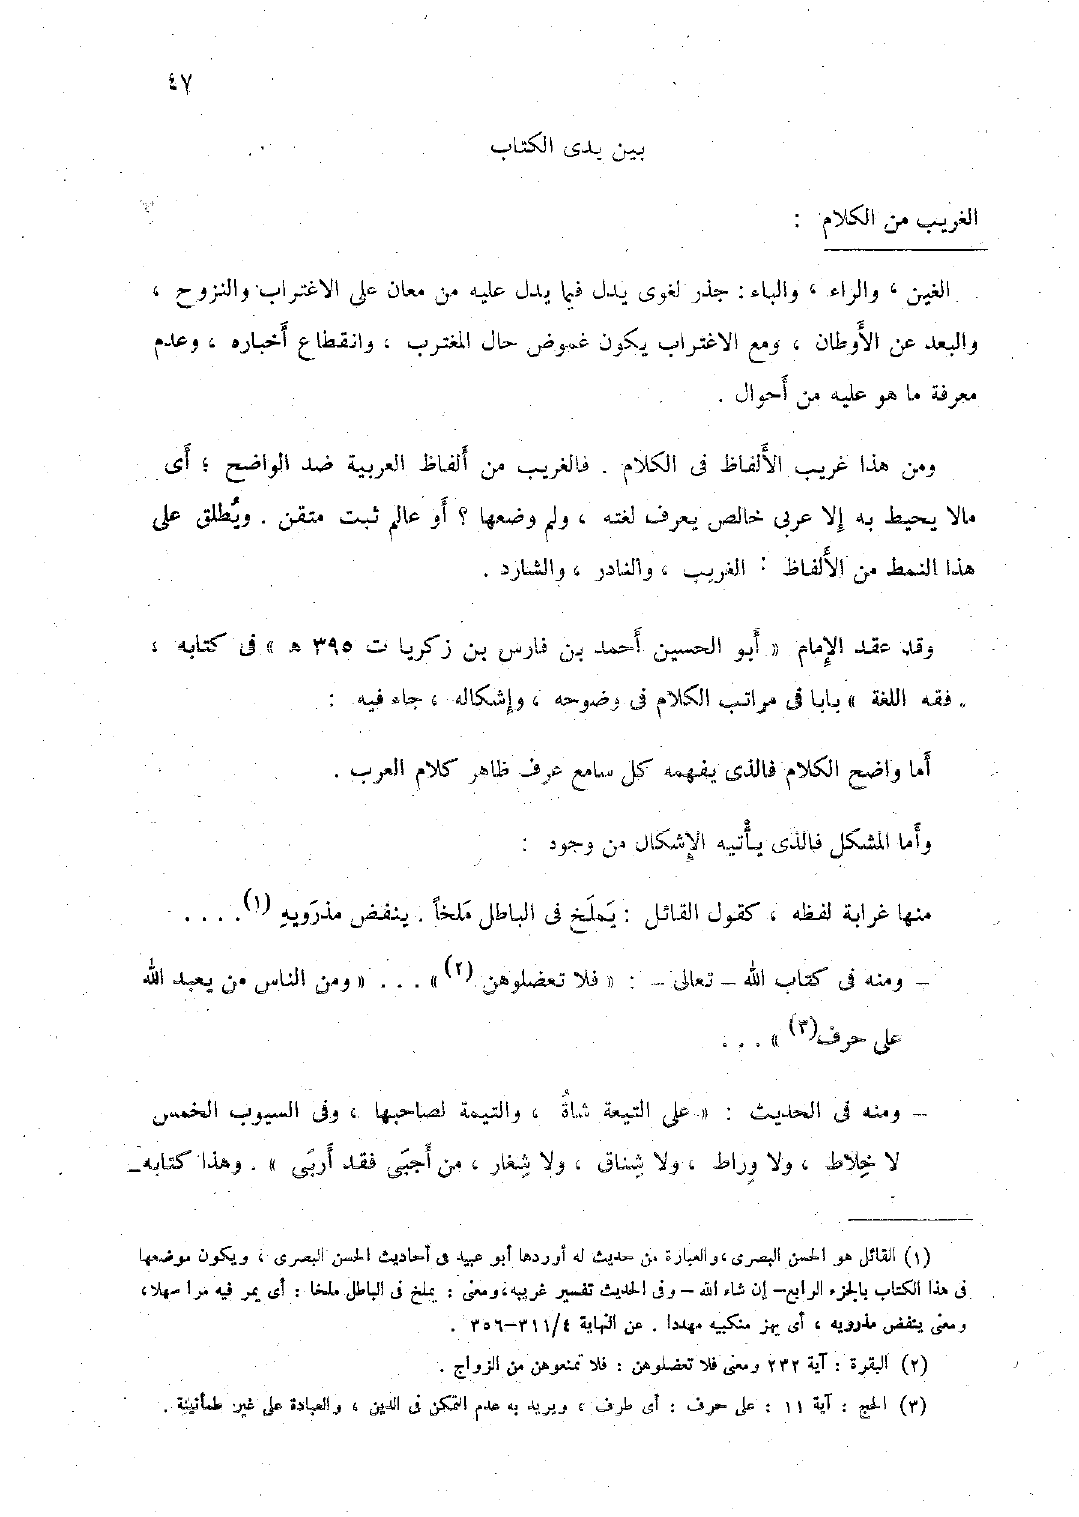 ٤٧
بين يدى الكتاب
الغريب من الكلام :
الغين ، والراء ، والباء : جذر لغوى يدل فيما يدل عليه من معان على الاغتراب والنزوح ،
والبعد عن الأَوطان ، ومع الاغتراب يكون غموض حال المغترب ، وانقطاع أَخباره ، وعدم
معرفة ما هو عليه من أَحوال .
ومن هذا غريب الأَلفاظ فى الكلام . فالغريب من أَلفاظ العربية ضد الواضح ؛ أَى
مالا يحيط به إلا عربى خالص يعرف لغته ، ولم وضعها ؟ أَو عالم ثبت متقن . ويُطلق على
هذا النمط من الأَلفاظ : الغريب ، والنادر ، والشارد .
وقد عقد الإمام « أَبو الحسين أَحمد بن فارس بن زكريا ت ٣٩٥ هـ » فى كتابه ،
« فقه اللغة » بابا فى مراتب الكلام فى وضوحه ، وإشكاله ، جاء فيه :
أَما واضح الكلام فالذى يفهمه كل سامع عرف ظاهر كلام العرب .
وأَما المشكل فالذى يأْتيه الإشكال من وجود :
منها غرابة لفظه ، كقول القائل : يَملَخ فى الباطل مَلخاً . ينفض مذرَويهِ (١) . . . .
– ومنه فى كتاب الله – تعالى – : « فلا تعضلوهن (٢) » . . . « ومن الناس من يعبد الله
على حرف (٣) » . . .
– ومنه فى الحديث : « على التيعة شاةٌ ، والتيمة لصاحبها ، وفى السيوب الخمس
لا خِلاط ، ولا وِراط ، ولا شِناق ، ولا شِغار ، من أَجبَى فقد أَربَى » . وهذا كتابه–
(١) القائل هو الحسن البصرى ، والعبارة من حديث له أوردها أبو عبيد فى أحاديث الحسن البصرى ، ويكون موضعها
فى هذا الكتاب بالجزء الرابع – إن شاء الله – وفى الحديث تفسير غريبه ، ومعنى : يملخ فى الباطل ملخا : أى يمر فيه مرا سهلا ،
ومعنى ينفض مذرويه ، أى يهز منكبيه مهددا . عن النهاية ٣١١/٤–٣٥٦ .
(٢) البقرة : آية ٢٣٢ ومعنى فلا تعضلوهن : فلا تمنعوهن من الزواج .
(٣) الحج : آية ١١ : على حرف : أى طرف ، ويريد به عدم التمكن فى الدين ، والعبادة على غير طمأنينة .